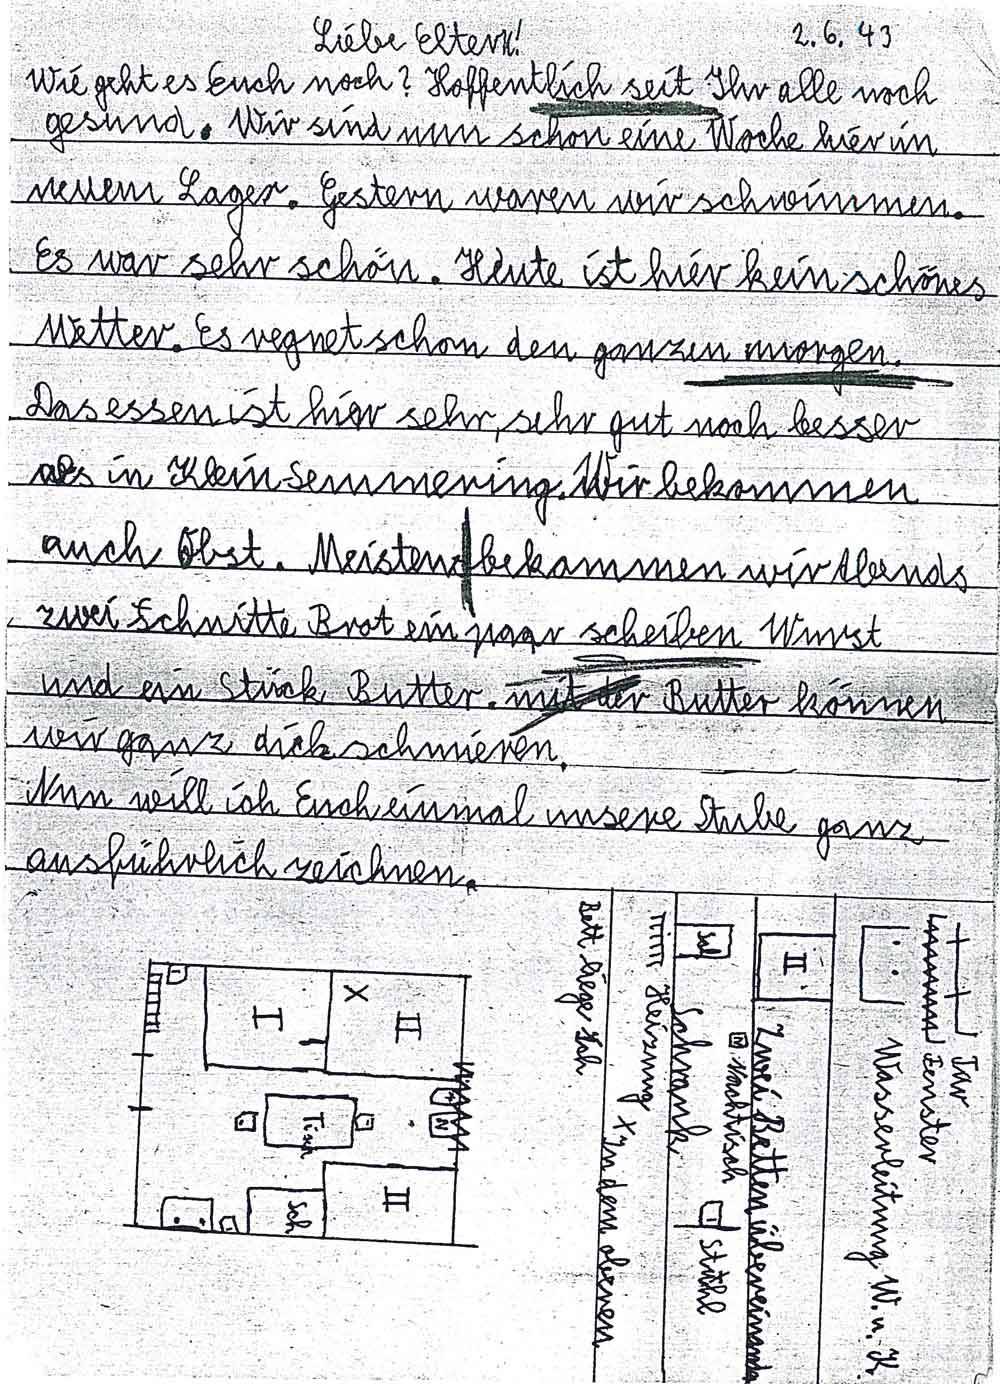 2.6.43
Liebe Eltern!
Wie geht es Euch noch? Hoffentlich seit Ihr alle noch
gesund. Wir sind nun schon eine Woche hier im
neuem Lager. Gestern waren wir schwimmen.
Es war sehr schön. Heute ist hier kein schönes
Wetter. Es regnet schon den ganzen morgen.
Das essen ist hier sehr, sehr gut noch besser
als in Klein Semmering. Wir bekommen
auch Obst. Meistens bekommen wir Abends
zwei Schnitte Brot ein paar scheiben Wurst
und ein Stück Butter. mit der Butter können
wir ganz dick schmieren.
Nun will ich Euch einmal unsere Stube ganz
ausführlich zeichnen.
Tür
Fenster
Wasserleitung W. u. K.
II Zwei Betten übereinander
N Nachtisch
Stuhl
Sch Schrank
Heizung X In dem oberen
Bett liege Ich
I
X
II
Tisch
N
Sch
II